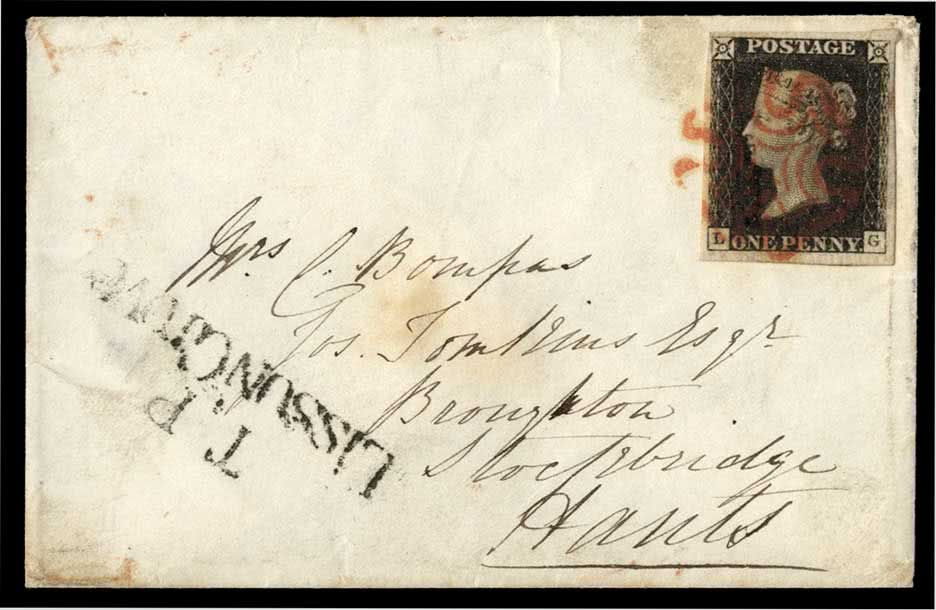 POSTAGE
L ONE PENNY. G
Mrs C. Bompas
Jos. Tomkins Esqr
Broughton
Stockbridge
Hants
T.P.
LissonGrove